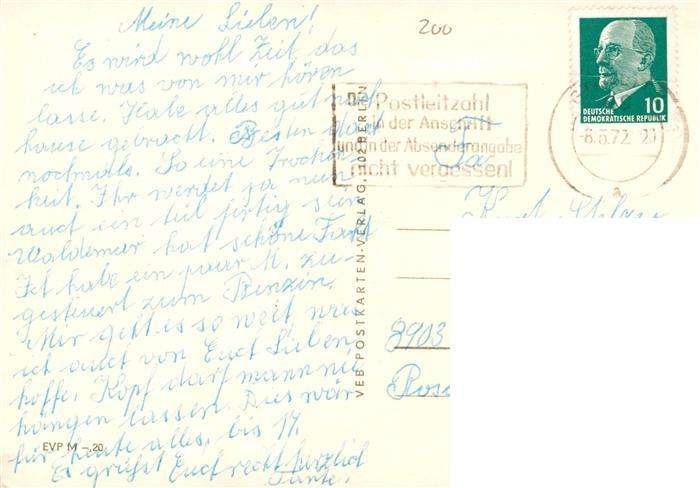 Meine Lieben!
Es wird wohl Zeit das
ich was von mir hören
lasse. Habe alles gut nach
hause gebracht. Besten Dank
nochmals. So eine Trocken-
heit. Ihr werdet ja nun
auch ein teil fertig sein
Waldemar hat schöne Fart
Ich habe ein paar M. zu-
gesteuert zum Benzin.
Mir geht es so weit, was
ich auch von Euch Lieben
hoffe. Kopf darf mann nie
hängen lassen. Dies wär
für heute alles, bis 17.
Es grüßt Euch recht herzlich
Tante.
EVP M –,20
VEB POSTKARTEN-VERLAG, 102 BERLIN
200
Postleitzahl
in der Anschrift
und in der Absenderangabe
nicht vergessen!
10
DEUTSCHE
DEMOKRATISCHE REPUBLIK
72
a
Fa
Kurt
8903